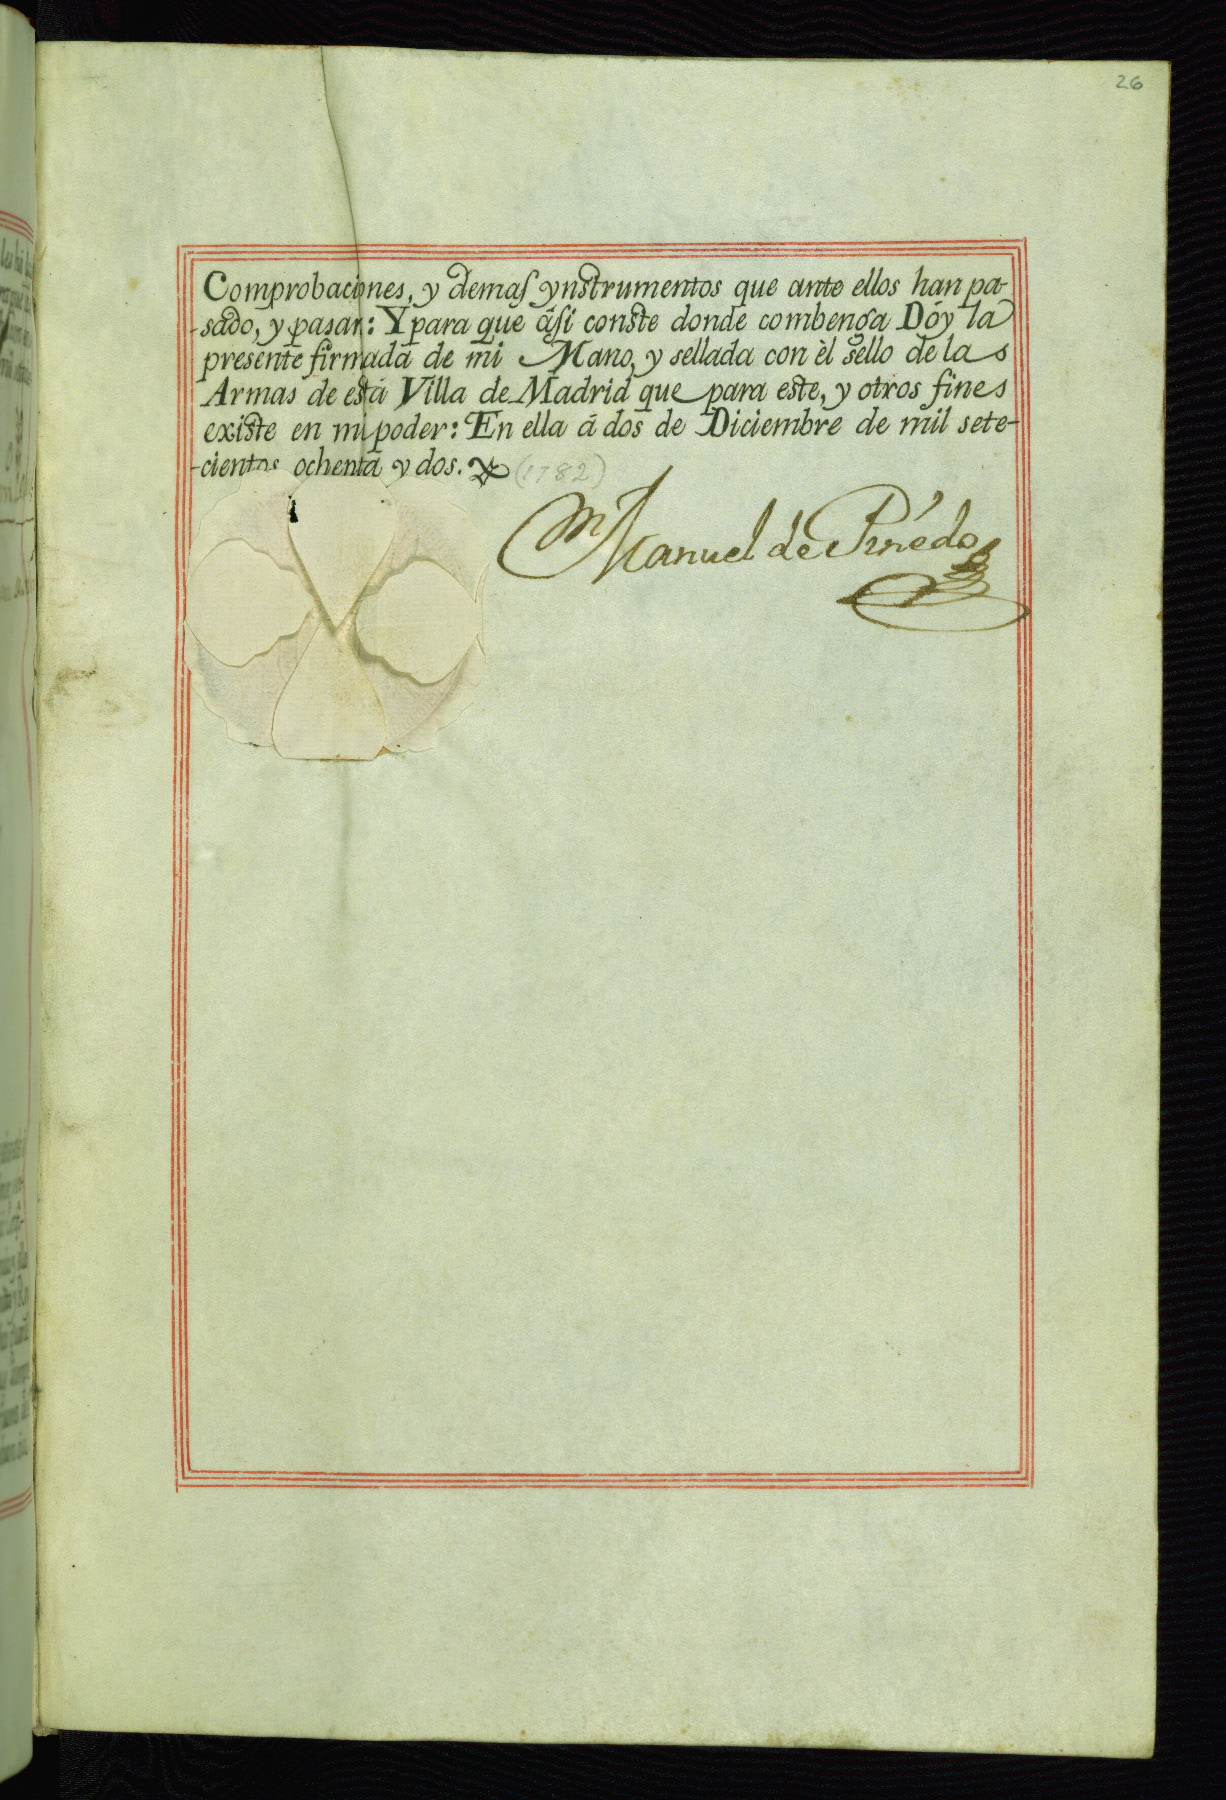 26
Comprobaciones, y demas ynstrumentos que ante ellos han pa-
-sado, y pasan: Y para que ási conste donde combenga Dóy la
presente firmada de mi Mano, y sellada con èl sello de las
Armas de está Villa de Madrid que para este, y otros fines
existe en mi poder: En ella á dos de Diciembre de mil sete-
-cientos ochenta y dos. (1782)
Manuel de Pinédo